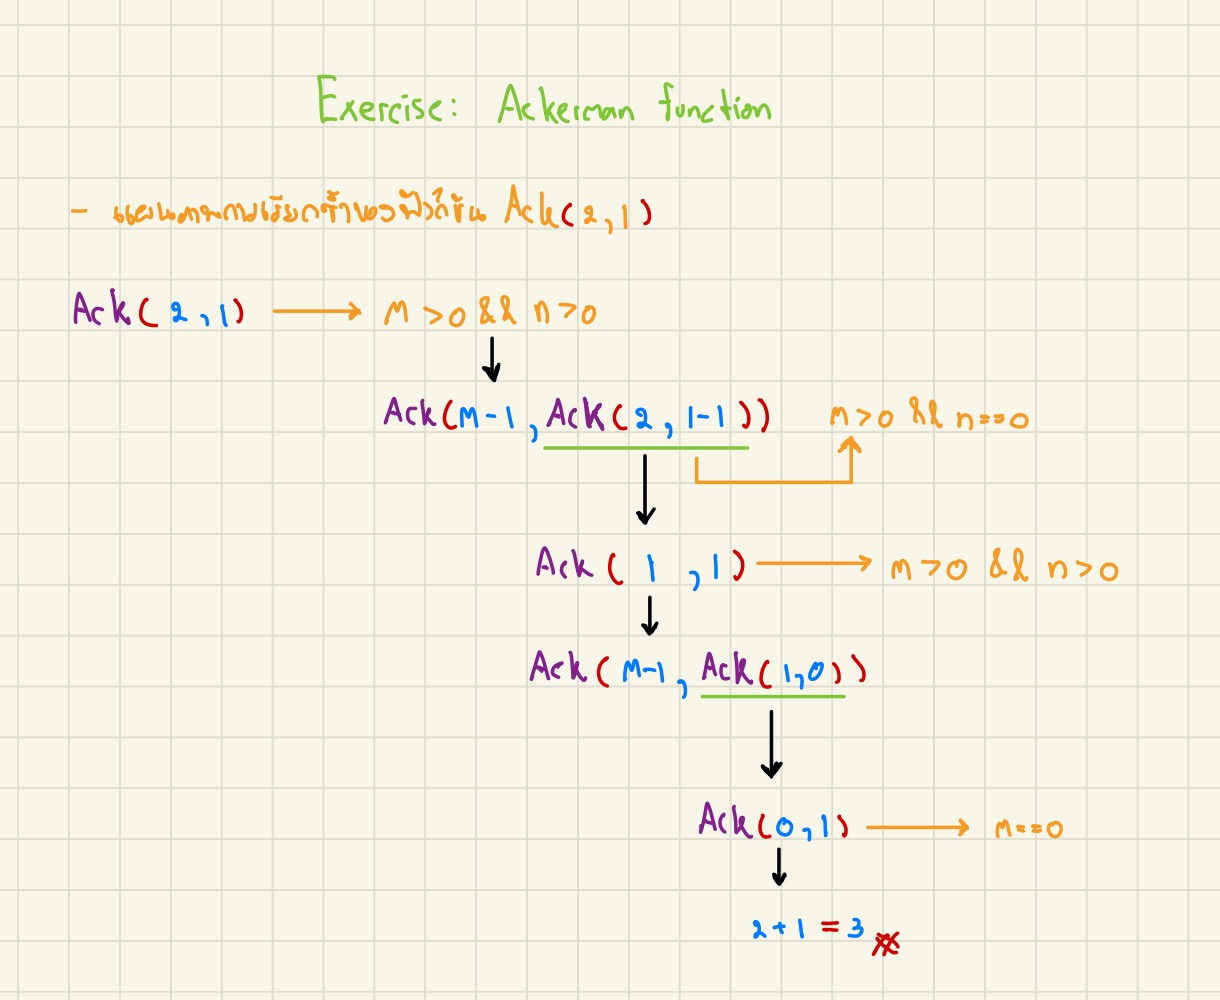 Exercise: Ackerman function
- แผนภาพการเรียกซ้ำของฟังก์ชัน Ack(2,1)
Ack(2,1) → m>0 && n>0
Ack(m-1, Ack(2, 1-1)) m>0 && n==0
Ack(1,1) → m>0 && n>0
Ack(m-1, Ack(1,0))
Ack(0,1) → m==0
2+1 = 3